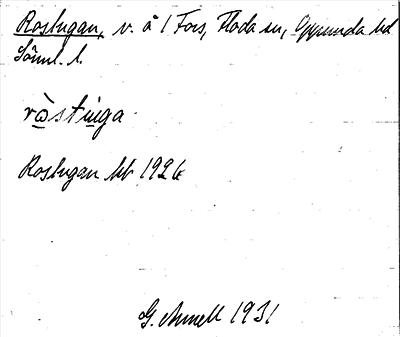 Rostugan, v. å 1 Fors, Floda sn, Oppunda hd
Söml. l.
ròstuga
Rostugan kb 1926
G. Annell 1931